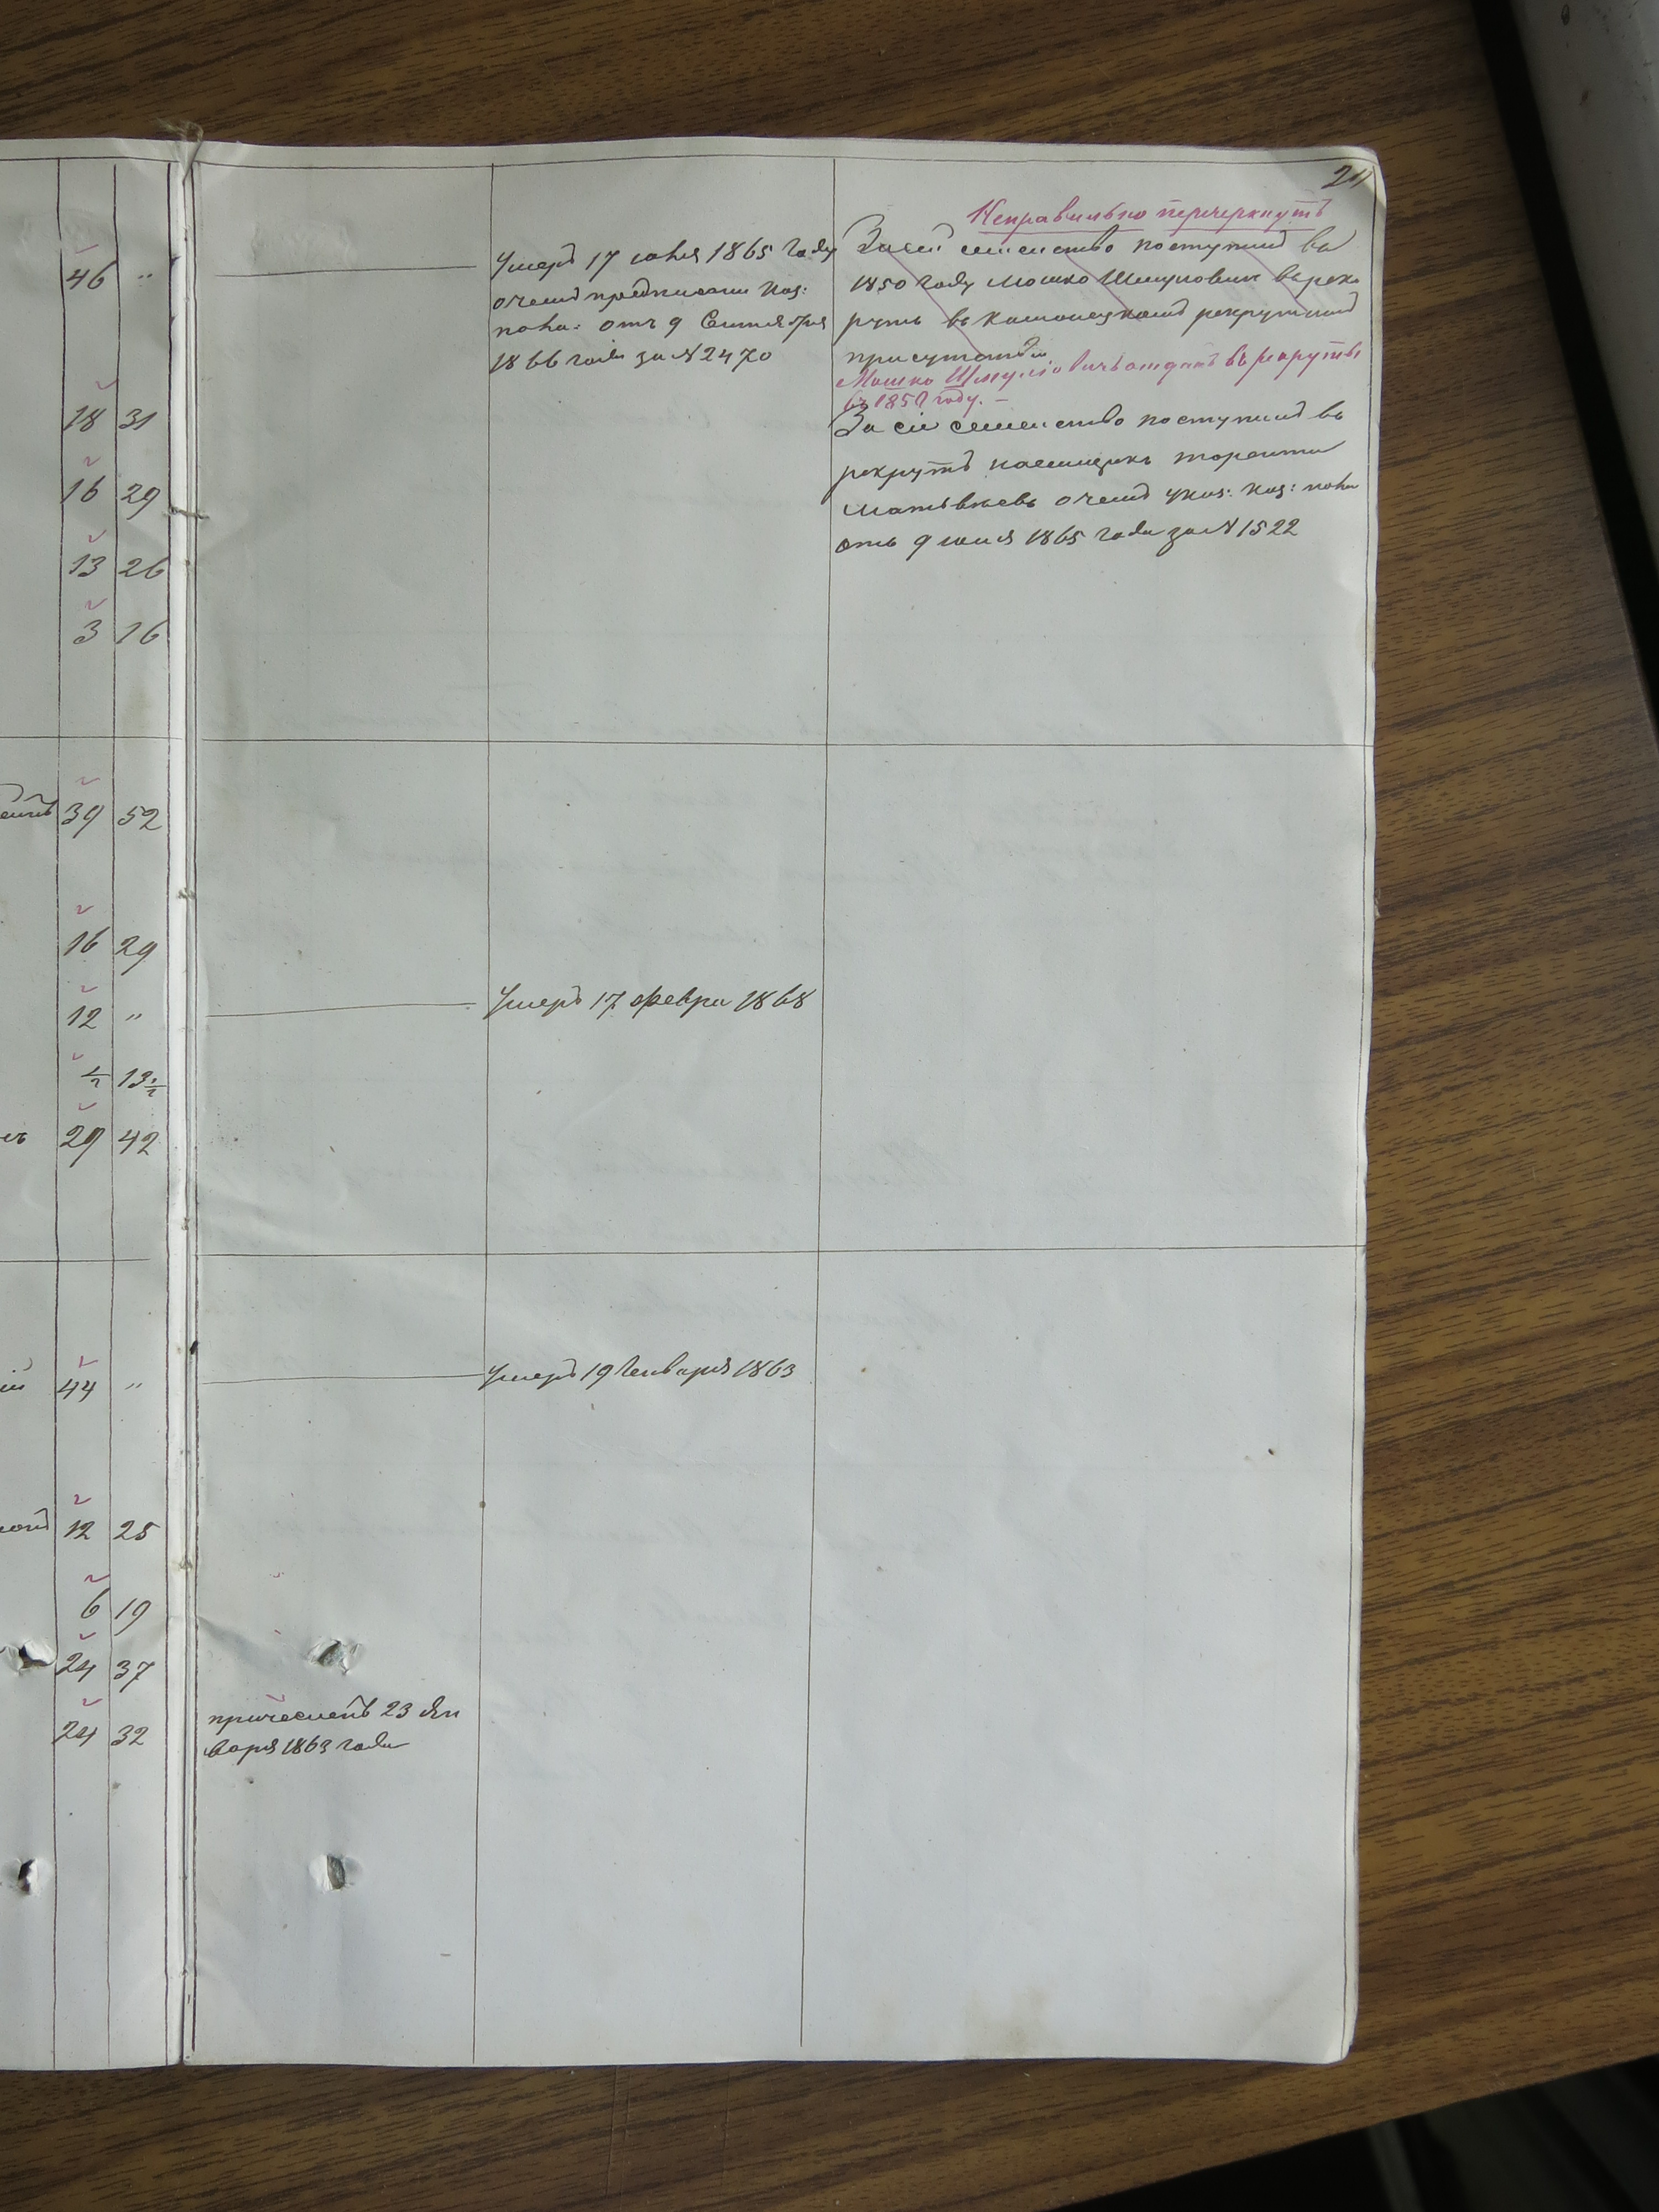 21
46 "
18 31
16 29
13 26
3 16
39 52
16 29
12 "
1/2 13 1/2
29 42
44 "
12 25
6 19
24 37
24 32
причесленъ 23 Ян
варя 1863 года
Умеръ 17 юня 1865 году
очемъ предписание Каз:
пала: отъ 9 Сентября
1866 года за N 2470
Умеръ 17 февра 1868
Умеръ 19 Генваря 1863
Неправильно перечеркнутъ
За сей семейство поступилъ въ
1850 году Мошко Шмулович въ рек
рутъ въ Каменецкомъ рекрутскомъ
присутствіи
Мошко Шмуліовичъ отданъ въ рекруты
въ 1850 году. —
За сіе семейство поступилъ въ
рекрутъ наемщикъ
Матвѣевъ очемъ указ: каз: пала
отъ 9 юня 1865 года за N 1522